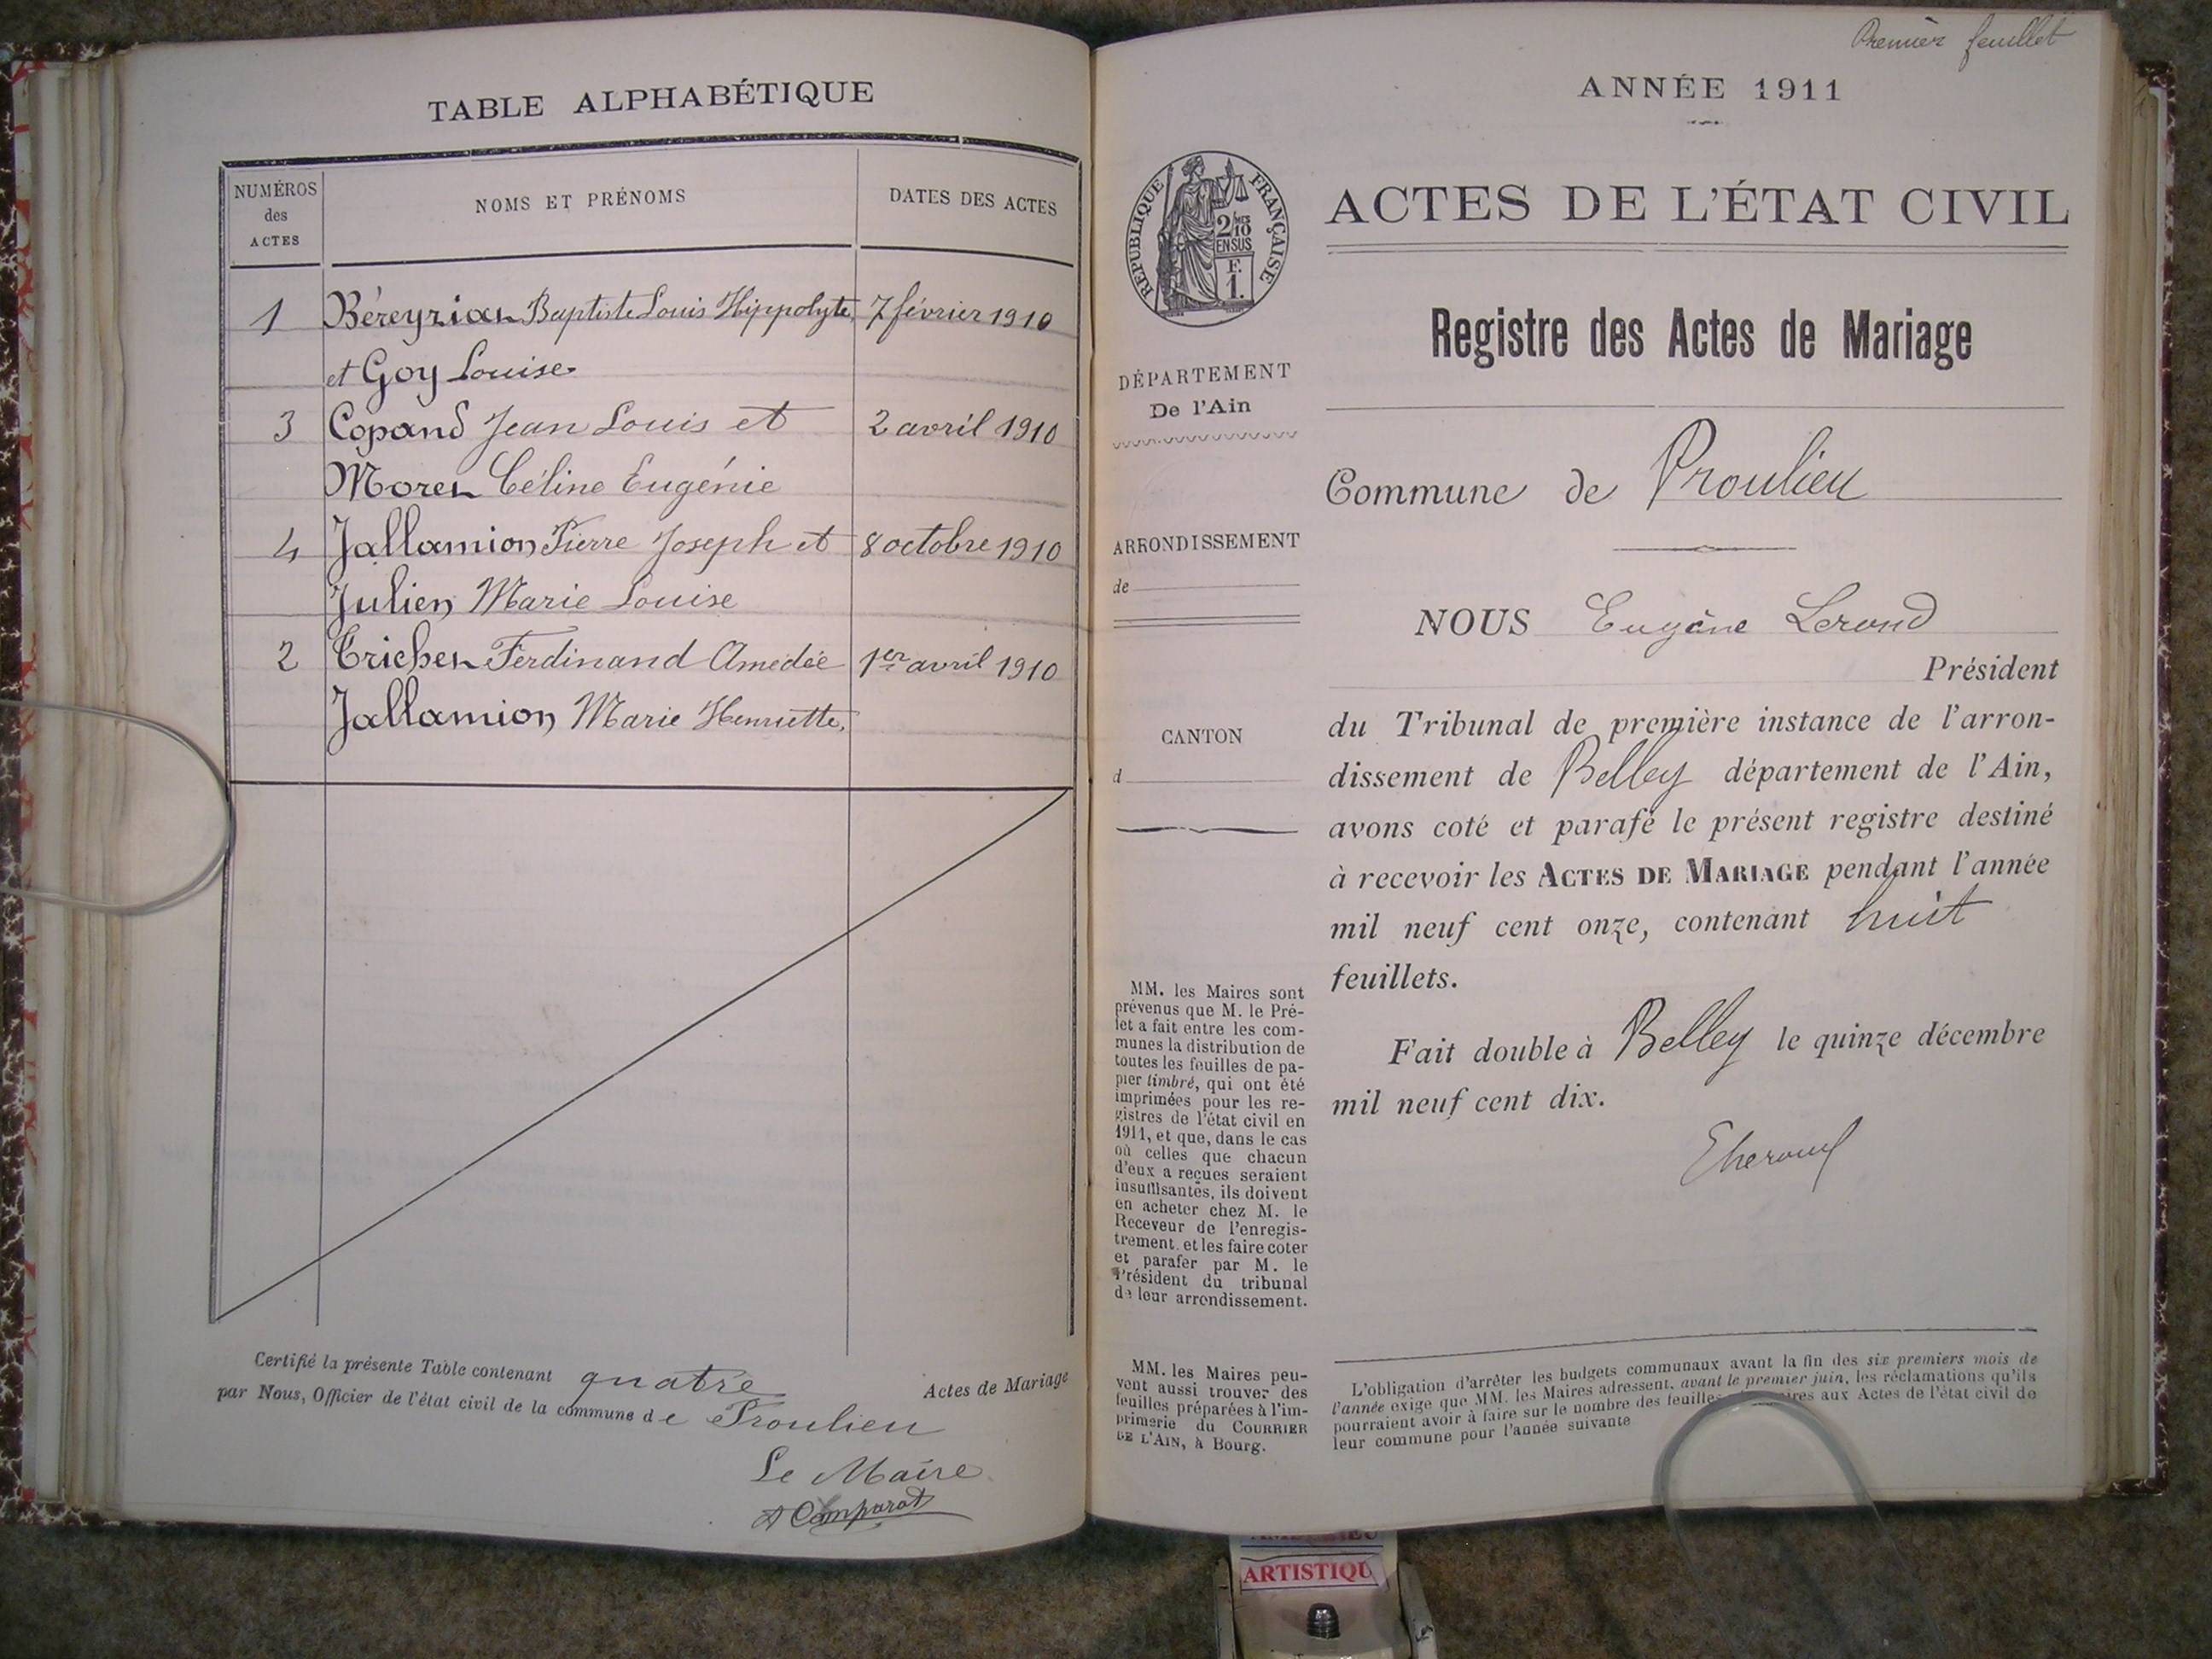 TABLE ALPHABÉTIQUE
NUMÉROS
des
ACTES
NOMS ET PRÉNOMS
DATES DES ACTES
1 Béreyziat Baptiste Louis Hippolyte, 7 février 1910
et Goy Louise
3 Copand Jean Louis et 2 avril 1910
Morel Céline Eugénie
4 Jallamion Pierre Joseph et 8 octobre 1910
Julien Marie Louise
2 Trichet Ferdinand Amédée 1er avril 1910
Jallamion Marie Henriette,
Certifié la présente Table contenant quatre Actes de Mariage
par Nous, Officier de l'état civil de la commune de Proulieu
Le Maire
Comparat
Premier feuillet
ANNÉE 1911
RÉPUBLIQUE FRANÇAISE
2/10 MES
EN SUS
F.
1.
DÉPARTEMENT
De l'Ain
ARRONDISSEMENT
de
CANTON
d
MM. les Maires sont
prévenus que M. le Pré-
fet a fait entre les com-
munes la distribution de
toutes les feuilles de pa-
pier timbré, qui ont été
imprimées pour les re-
gistres de l'état civil en
1911, et que, dans le cas
où celles que chacun
d'eux a reçues seraient
insuffisantes, ils doivent
en acheter chez M. le
Receveur de l'enregis-
trement et les faire coter
et parafer par M. le
Président du tribunal
de leur arrondissement.
MM. les Maires peu-
vent aussi trouver des
feuilles préparées à l'im-
primerie du COURRIER
DE L'AIN, à Bourg.
ACTES DE L'ÉTAT CIVIL
Registre des Actes de Mariage
Commune de Proulieu
NOUS Eugène Lerond
Président
du Tribunal de première instance de l'arron-
dissement de Belley département de l'Ain,
avons coté et parafé le présent registre destiné
à recevoir les ACTES DE MARIAGE pendant l'année
mil neuf cent onze, contenant huit
feuillets.
Fait double à Belley le quinze décembre
mil neuf cent dix.
L'obligation d'arrêter les budgets communaux avant la fin des six premiers mois de
l'année exige que MM. les Maires adressent, avant le premier juin, les réclamations qu'ils
pourraient avoir à faire sur le nombre des feuilles aux Actes de l'état civil de
leur commune pour l'année suivante
ARTISTIQU